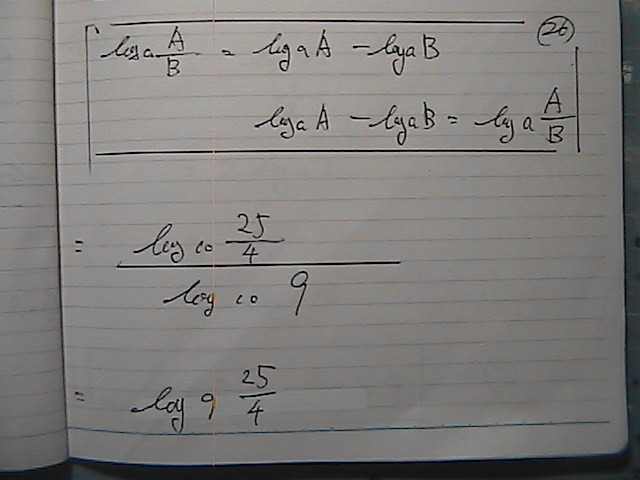 (26)
log a A/B = log a A - log a B
log a A - log a B = log a A/B
= log 10 25/4
log 10 9
= log 9 25/4